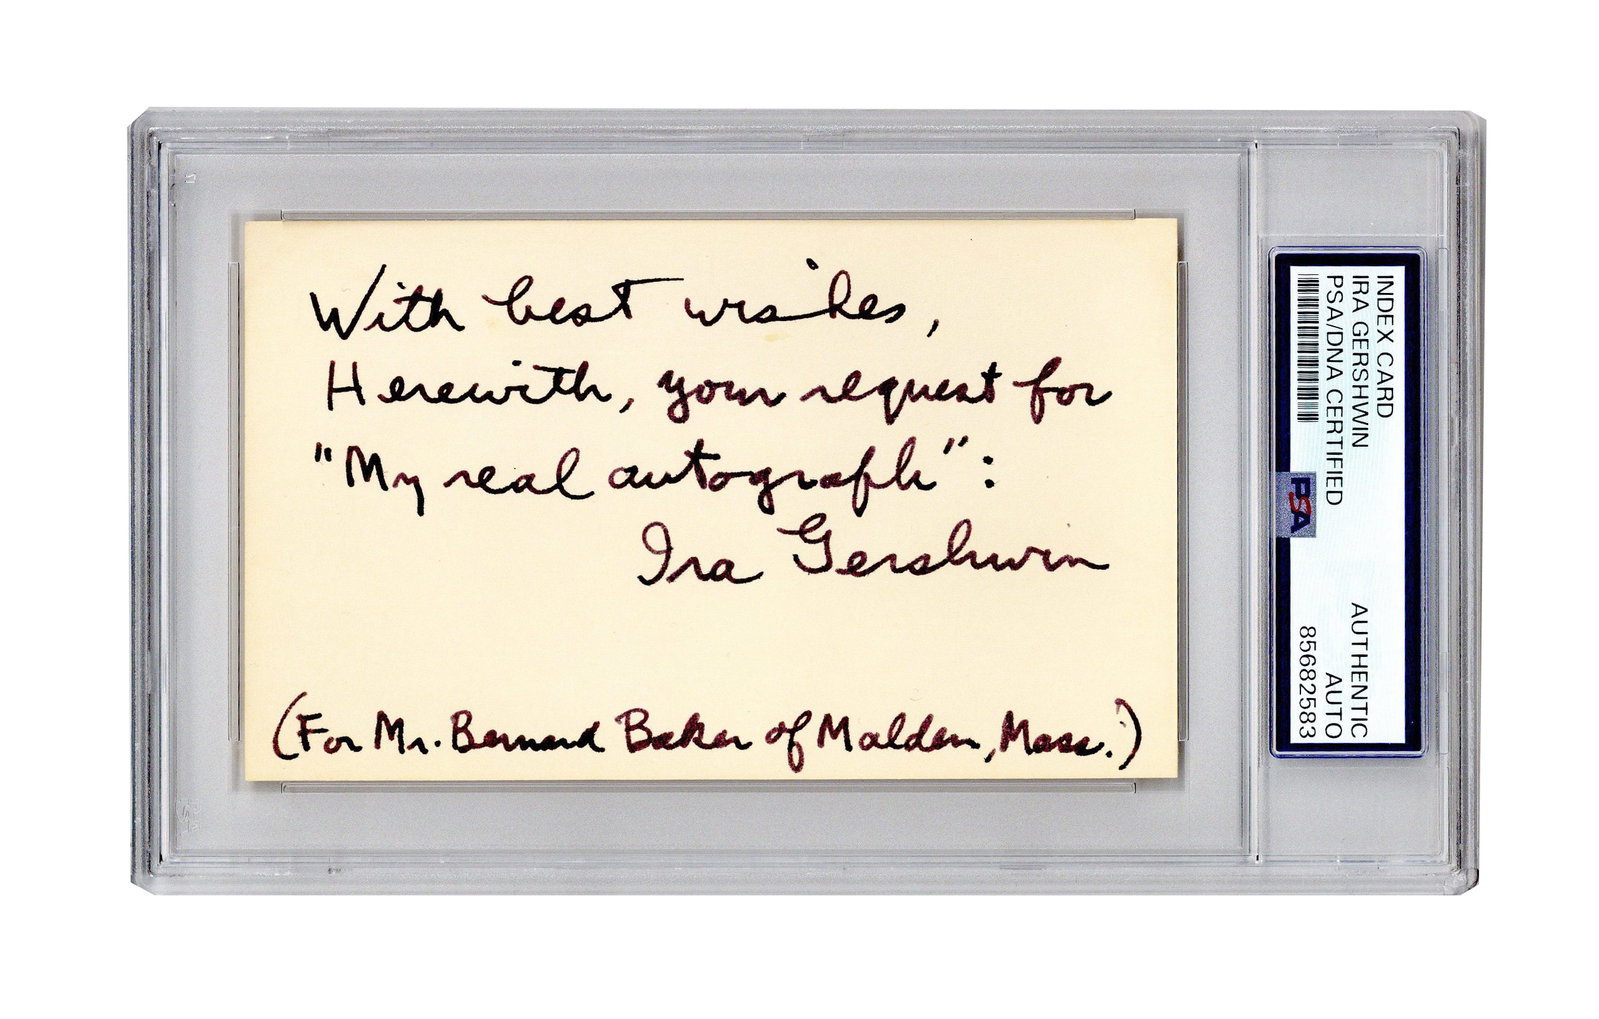 With best wishes,
Herewith, your request for
"My real autograph":
Ira Gershwin
(For Mr. Bernard Baker of Malden, Mass.)
INDEX CARD
IRA GERSHWIN
PSA/DNA CERTIFIED
AUTHENTIC
AUTO
85682583
PSA